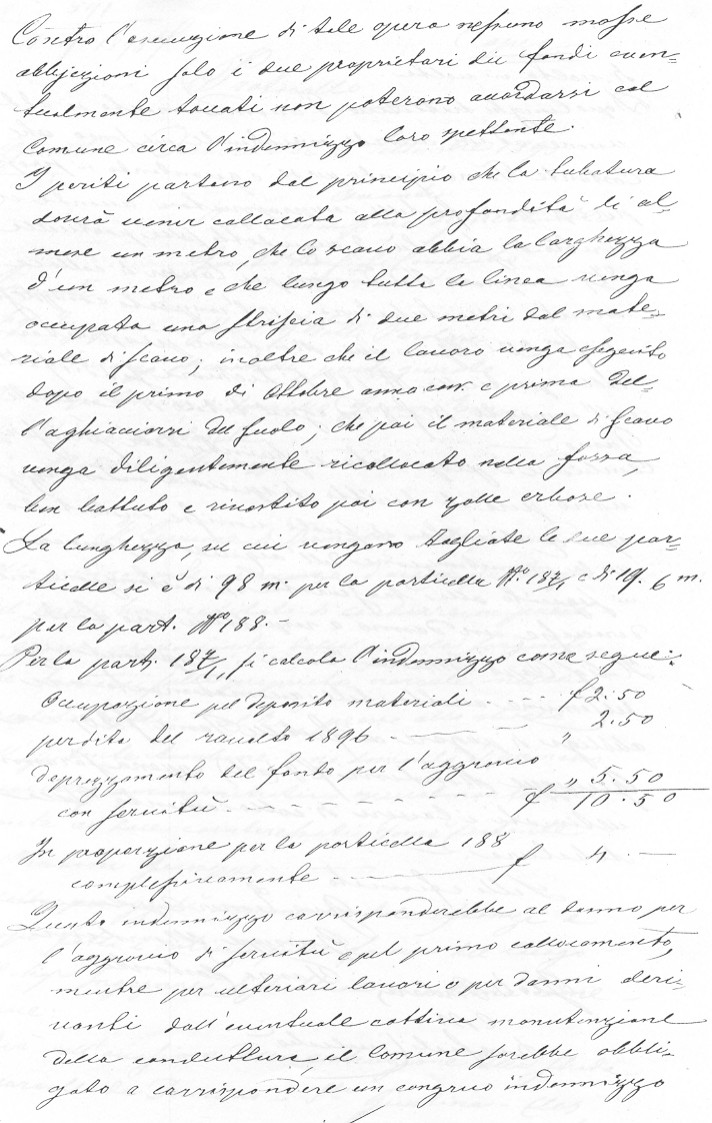 Contro l'esecuzione di tale opera nessuno mosse
obbjezioni solo i due proprietari dei fondi even-
tualmente toccati non poterono accordarsi col
Comune circa l'indennizzo loro spettante.
I periti partono dal principio che la tubatura
dovrà venir collocata alla profondità di al-
meno un metro, che lo scavo abbia la larghezza
d'un metro e che lungo tutta la linea venga
occupata una striscia di due metri dal mate-
riale di scavo; inoltre che il lavoro venga eseguito
dopo il primo di Ottobre anno corr. e prima del-
l'aghiacciarsi del suolo; che poi il materiale di scavo
venga diligentemente ricollocato nella fossa,
ben battuto e rivestito poi con zolle erbose.
La lunghezza, su cui vengono tagliate le due par-
ticelle si è di 98 m. per la particella No. 187/1 e di 19.6 m.
per la part. No 188.-
Per la part. 187/1, si calcola l'indennizzo come segue:
Occupazione pel deposito materiali - - - - f 2.50
perdita del raccolto 1896 - - - - " 2.50
deprezzamento del fondo per l'aggravio
con servitù - - - - " 5.50
f 10.50
In proporzione per la particella 188
complessivamente - - - - f 4.—
Questo indennizzo corrisponderebbe al danno per
l'aggravio di servitù e pel primo collocamento,
mentre per ulteriori lavori o per danni deri-
vanti dall'eventuale cattiva manutenzione
della conduttura, il Comune sarebbe obbli-
gato a corrispondere un congruo indennizzo